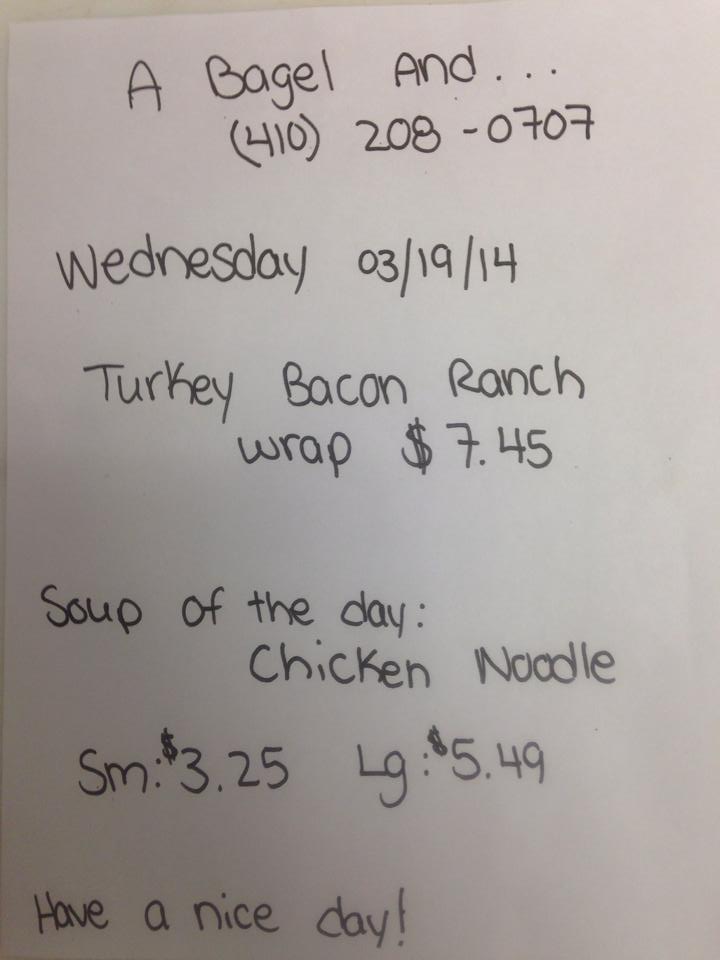 A Bagel And...
(410) 208-0707
Wednesday 03/19/14
Turkey Bacon Ranch
wrap $7.45
Soup of the day:
Chicken Noodle
Sm:$3.25 Lg:$5.49
Have a nice day!